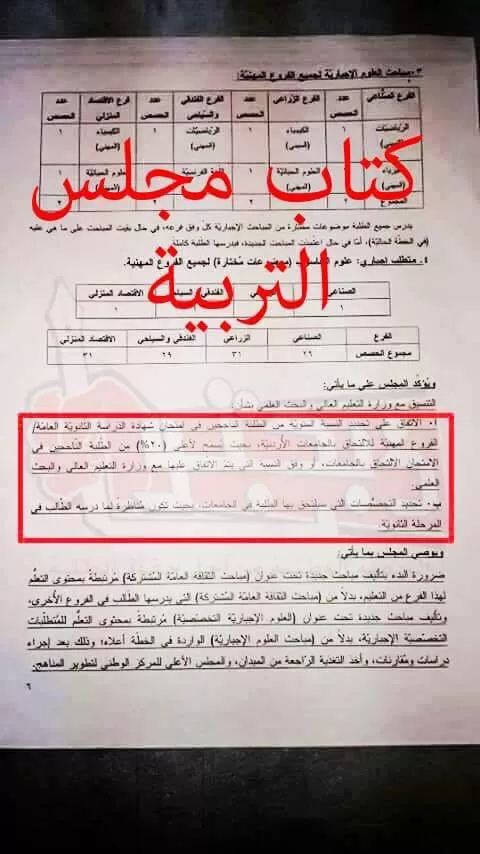 ٣- مباحث العلوم الإجباريّة لجميع الفروع المهنيّة:
الفرع الصّناعي عدد الحصص الفرع الزّراعي عدد الحصص الفرع الفندقي والسّياحي عدد الحصص فرع الاقتصاد المنزلي عدد الحصص
الرّياضيّات (المهني) ١ الكيمياء (المهني) ١ الرّياضيّات (المهني) ١ الكيمياء (المهني) ١
(المهني) ١ العلوم الحياتيّة (المهني) ١ اللغة الفرنسيّة ١ العلوم الحياتيّة (المهني) ١
المجموع ٢ ٢ ٢ ٢
كتاب مجلس
التربية
يدرس جميع الطلبة موضوعات مختارة من المباحث الإجباريّة كلّ وفق فرعه، في حال بقيت المباحث على ما هي عليه
(في الخطّة الحاليّة)، أمّا في حال اعتُمدت المباحث الجديدة، فيدرسها الطلبة كاملة
٤- متطلب إجباري: علوم (موضوعات مُختارة) لجميع الفروع المهنية.
الصناعي الفندقي الاقتصاد المنزلي
١ ١
الفرع الصناعي الزراعي الفندقي والسياحي الاقتصاد المنزلي
مجموع الحصص ٢٦ ٣١ ٢٩ ٣١
ويؤكّد المجلس على ما يأتي:
التنسيق مع وزارة التعليم العالي والبحث العلمي بشأن:
أ- الاتفاق على تحديد النسبة المئوية من الطلبة الناجحين في امتحان شهادة الدراسة الثانويّة العامّة/
الفروع المهنيّة للالتحاق بالجامعات الأردنيّة، بحيث يُسمح لأعلى (٢٠%) من الطّلبة النّاجحين في
الامتحان الالتحاق بالجامعات، أو وفق النسبة التي يتمّ الاتفاق عليها مع وزارة التعليم العالي والبحث
العلمي.
ب- تحديد التخصّصات التي سيلتحق بها الطلبة في الجامعات، بحيث تكون مُناظرة لما درسه الطّالب في
المرحلة الثانويّة.
ويوصي المجلس بما يأتي:
ضرورة البدء بتأليف مباحث جديدة تحت عنوان (مباحث الثقافة العامّة المُشتركة) مُرتبطة بمحتوى التعلّم
لهذا الفرع من التعليم، بدلاً من (مباحث الثقافة العامّة المُشتركة) التي يدرسها الطّالب في الفروع الأخرى،
وتأليف مباحث جديدة تحت عنوان (العلوم الإجباريّة التخصّصيّة) مُرتبطة بمحتوى التعلّم للمُتطلّبات
التخصّصيّة الإجباريّة، بدلاً من (مباحث العلوم الإجباريّة) الواردة في الخطّة أعلاه؛ وذلك بعد إجراء
دراسات ومُقارنات، وأخذ التغذية الرّاجعة من الميدان، والمجلس الأعلى للمركز الوطني لتطوير المناهج.
٦